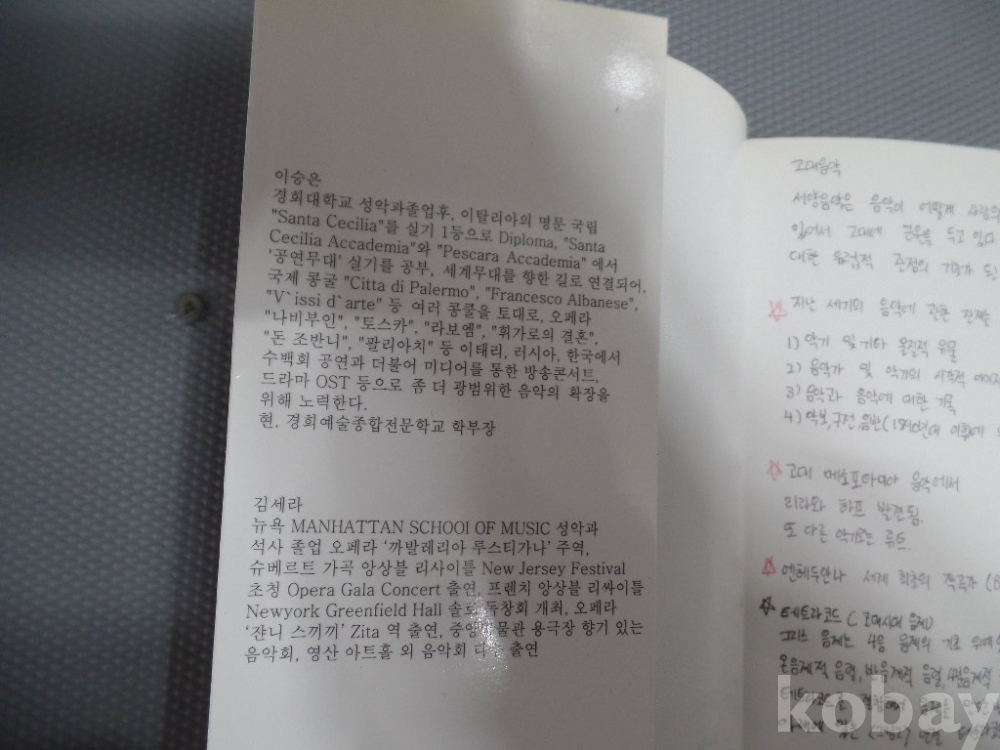 이승은
경희대학교 성악과졸업후, 이탈리아의 명문 국립
"Santa Cecilia"를 실기 1등으로 Diploma, "Santa
Cecilia Accademia"와 "Pescara Accademia" 에서
'공연무대' 실기를 공부, 세계무대를 향한 길로 연결되어,
국제 콩굴 "Citta di Palermo", "Francesco Albanese",
"V`issi d`arte" 등 여러 콩쿨을 토대로, 오페라
"나비부인", "토스카", "라보엠", "휘가로의 결혼",
"돈 조반니", "팔리아치" 등 이태리, 러시아, 한국에서
수백회 공연과 더불어 미디어를 통한 방송콘서트,
드라마 OST 등으로 좀 더 광범위한 음악의 확장을
위해 노력한다.
현. 경희예술종합전문학교 학부장
김세라
뉴욕 MANHATTAN SCHOOl OF MUSIC 성악과
석사 졸업 오페라 '까발레리아 루스티가나' 주역,
슈베르트 가곡 앙상블 리사이틀 New Jersey Festival
초청 Opera Gala Concert 출연, 프렌치 앙상블 리싸이틀
Newyork Greenfield Hall 솔로 독창회 개최, 오페라
'쟌니 스끼끼' Zita 역 출연, 중앙박물관 용극장 향기 있는
음악회, 영산 아트홀 외 음악회 다수 출연
고대음악
서양음악은 음악이 어떻게
있어서 고대에 근원을 두고 있다
대한 유럽적 관점의
지난 세기의 음악에 관한
1) 악기 및 기타 물질적 유물
2) 음악가 및 악기의 시각적
3) 음악과 음악에 대한 기록
4) 악보, 구전, 음반
고대 메소포타미아 음악에서
리라와 하프 발견됨.
또 다른 악기로는 류트.
엔헤두안나 세계 최초의 작곡가
테트라코드
그리스 음계는 4음 음계의 기초 위에
온음계적 음렬, 반음계적 음렬,
kobay